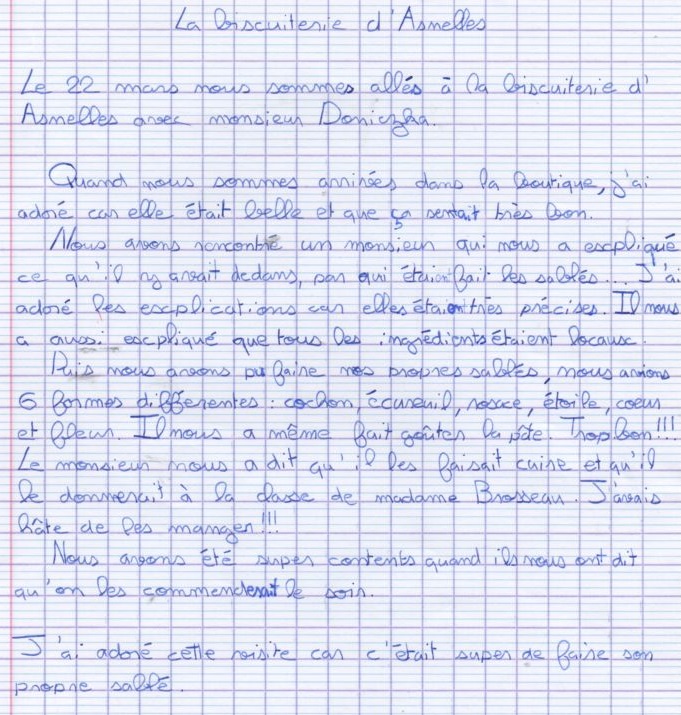 La biscuiterie d'Asnelles
Le 22 mars nous sommes allés à la biscuiterie d'
Asnelles avec monsieur Doniczka.
Quand nous sommes arrivées dans la boutique, j'ai
adoré car elle était belle et que ça sentait très bon.
Nous avons rencontré un monsieur qui nous a escpliqué
ce qu'il y avait dedans, par qui étaient fait les sablés... J'ai
adoré les escplications car elles étaient très précises. Il nous
a aussi escpliqué que tous les ingrédients étaient locaux.
Puis nous avons pu faire nos propres sablés, nous avions
6 formes différentes : cochon, écureuil, rosace, étoile, coeur
et fleur. Il nous a même fait goûter la pâte. Trop bon!!!
Le monsieur nous a dit qu'il les faisait cuire et qu'il
le donnerait à la classe de madame Brosseau. J'avais
hâte de les manger!!!
Nous avons été super contents quand ils nous ont dit
qu'on les commenderait le soir.
J'ai adoré cette visite car c'était super de faire son
propre sablé.